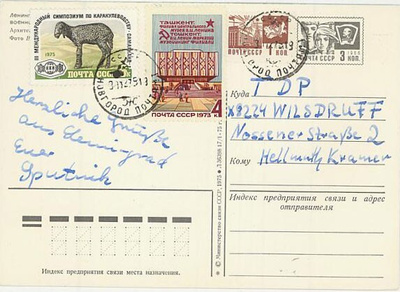 Ленинг
военно
Архите
Фото В
III МЕЖДУНАРОДНЫЙ СИМПОЗИУМ ПО КАРАКУЛЕВОДСТВУ. САМАРКАНД
1975
ПОЧТА СССР
ТАШКЕНТ.
ФИЛИАЛ ЦЕНТРАЛЬНОГО
МУЗЕЯ В.И. ЛЕНИНА
ТОШКЕНТ.
ПОЧТА СССР 1973 4
ПОЧТА СССР
1 КОП
3 КОП
ПОЧТА СССР
НОВГОРОД ПОЧТАМТ
НОВГОРОД ПОЧТАМТ
Herzliche Grüße
aus Leningrad
Euer
Sputnik
Куда TDP
X8224 WILSDRUFF
Nossener Straße 2
Кому Hellmuth Kramer
Индекс предприятия связи и адрес
отправителя
Индекс предприятия связи места назначения.
© Министерство связи СССР, 1975